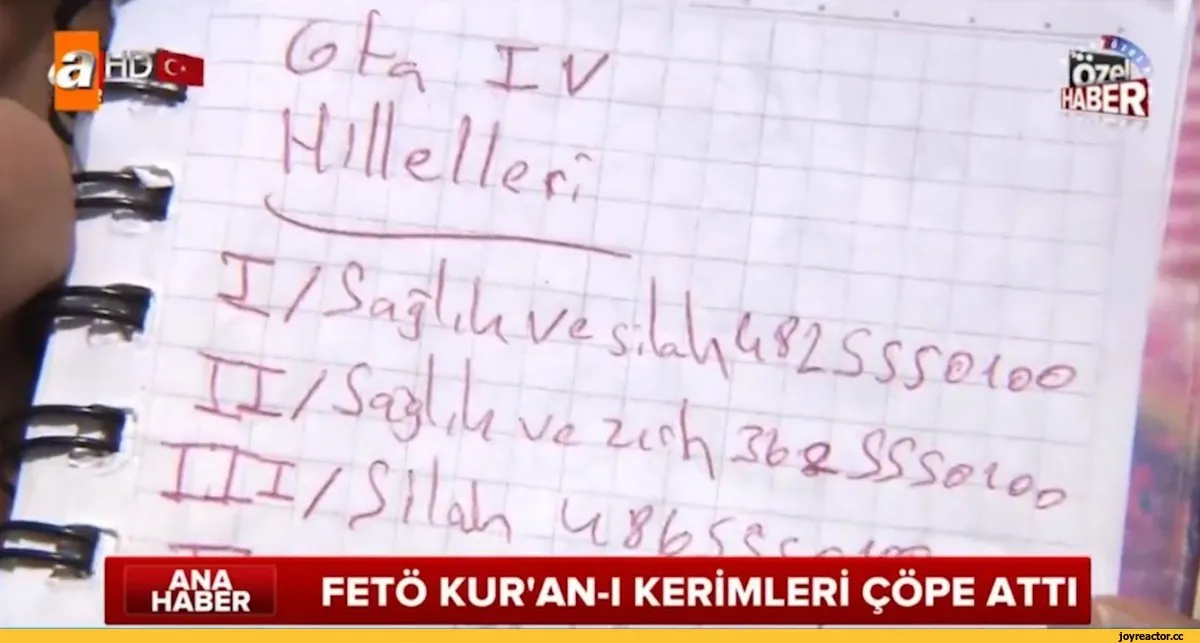 a HD
ÖZEL
Özel
HABER
Gta IV
Hıllelleri
I/Sağlık ve silah 4825550100
II/Sağlık ve zırh 3625550100
III/Silah 4865550100
I
ANA
HABER
FETÖ KUR'AN-I KERİMLERİ ÇÖPE ATTI
joyreactor.cc